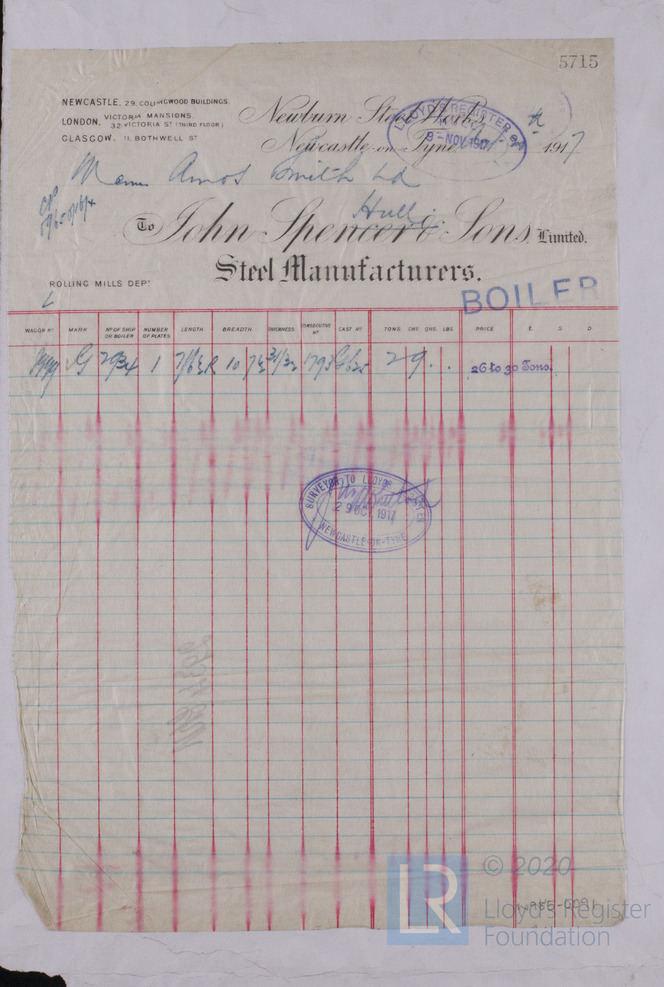 5715
NEWCASTLE. 29, COLLINGWOOD BUILDINGS.
LONDON. VICTORIA MANSIONS.
32 VICTORIA ST (THIRD FLOOR)
GLASGOW. 11, BOTHWELL ST
Newburn Steel Works
Newcastle-on-Tyne 1917
LLOYD'S REGISTER OF
9-NOV.1917
Amos Smith Ld
Hull
To John Spencer & Sons, Limited.
Steel Manufacturers.
ROLLING MILLS DEPT
BOILER
WAGON No MARK No OF SHIP OR BOILER NUMBER OF PLATES LENGTH BREADTH THICKNESS CONSECUTIVE No CAST No TONS CWS. QRS. LBS. PRICE £ S D
G 2934 1 10 31/32 29 . . 26 to 30 Tons.
SURVEYOR TO LLOYDS REGISTER
29 OCT 1917
NEWCASTLE-ON-TYNE
LR
© 2020
Lloyd's Register
Foundation